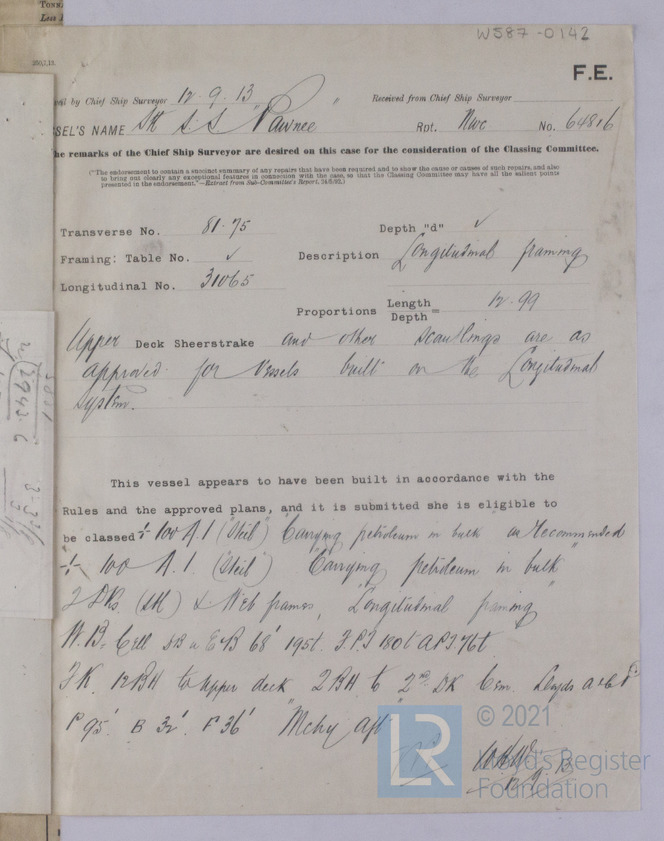 W587-0142
F.E.
by Chief Ship Surveyor 12.9.13 Received from Chief Ship Surveyor
SEL'S NAME S.S. "Pawnee" Rpt. Nwc No. 64816
he remarks of the Chief Ship Surveyor are desired on this case for the consideration of the Classing Committee.
("The endorsement to contain a succinct summary of any repairs that have been required and to show the cause or causes of such repairs, and also
to bring out clearly any exceptional features in connection with the case, so that the Classing Committee may have all the salient points
presented in the endorsement."—Extract from Sub-Committee's Report, 24/5/92.)
Transverse No. 81.75 Depth "d" ✓
Framing: Table No. ✓ Description Longitudinal framing
Longitudinal No. 31065
Proportions Length/Depth = 12.99
Upper Deck Sheerstrake and other scantlings are as
approved for vessels built on the Longitudinal
system.
This vessel appears to have been built in accordance with the
Rules and the approved plans, and it is submitted she is eligible to
be classed 100 A.1 (Steel) "Carrying petroleum in bulk" as Recommended
100 A.1. (Steel) "Carrying petroleum in bulk"
2 Dks (Stl) & Web frames, "Longitudinal framing"
W.B. Cell 68' 195t. F.P.T 180t A.P.T 76t
F.K. 12 BH to upper deck 2 BH to 2nd DK Cem. Lloyds
P 95' B 32' F 36' "Mchy aft"
12.9.13
LR © 2021
Lloyd's Register
Foundation